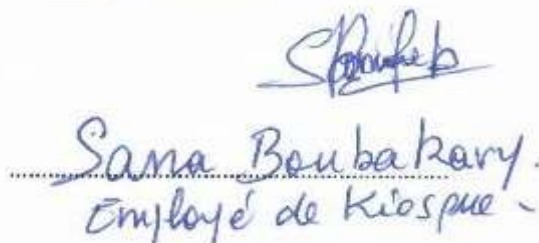 Sana Boubakary.
Employé de Kiosque -